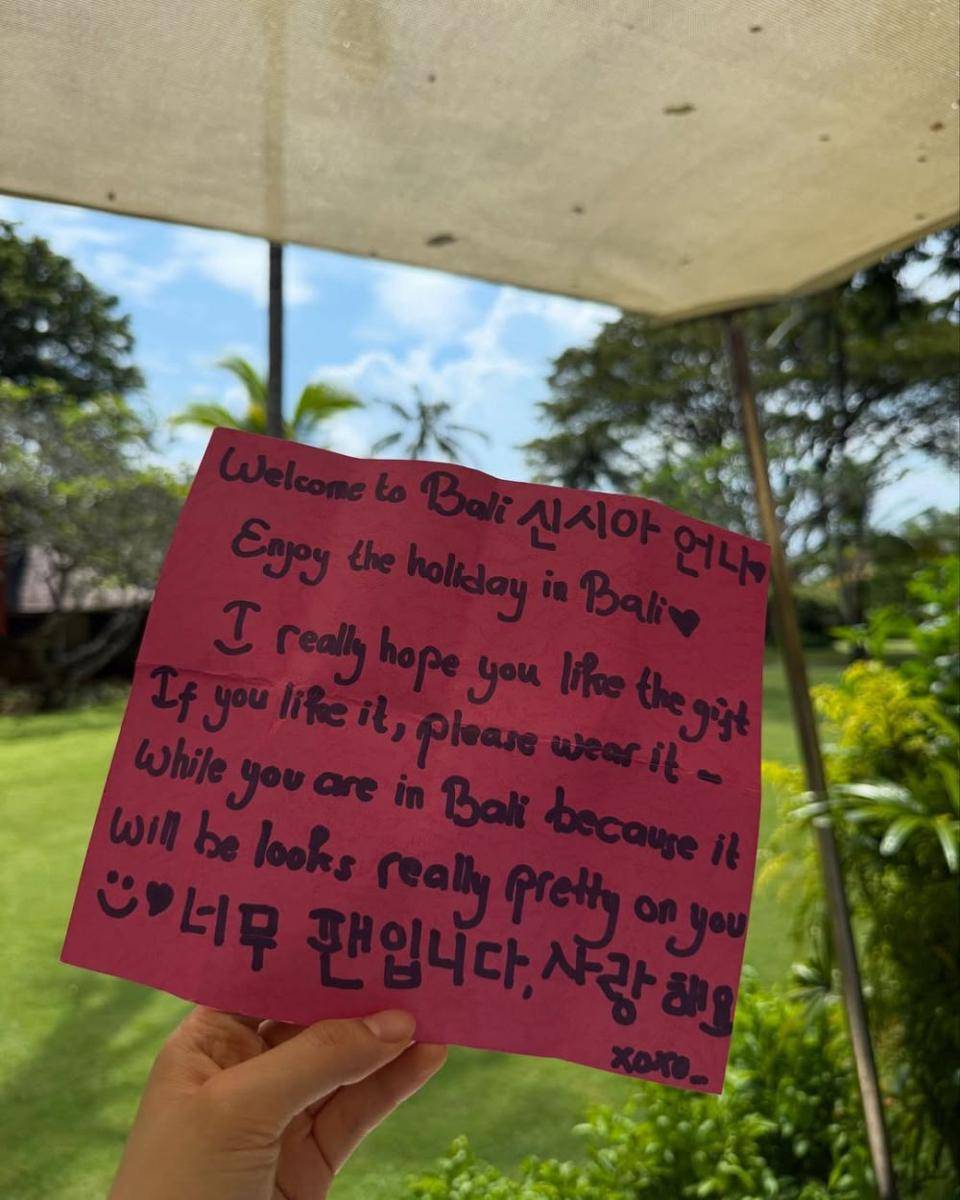 Welcome to Bali 신시아 언니♥
Enjoy the holiday in Bali♥
I really hope you like the gift
If you like it, please wear it -
while you are in Bali because it
will be looks really pretty on you
☺♥너무 팬입니다, 사랑해요
xoxo_